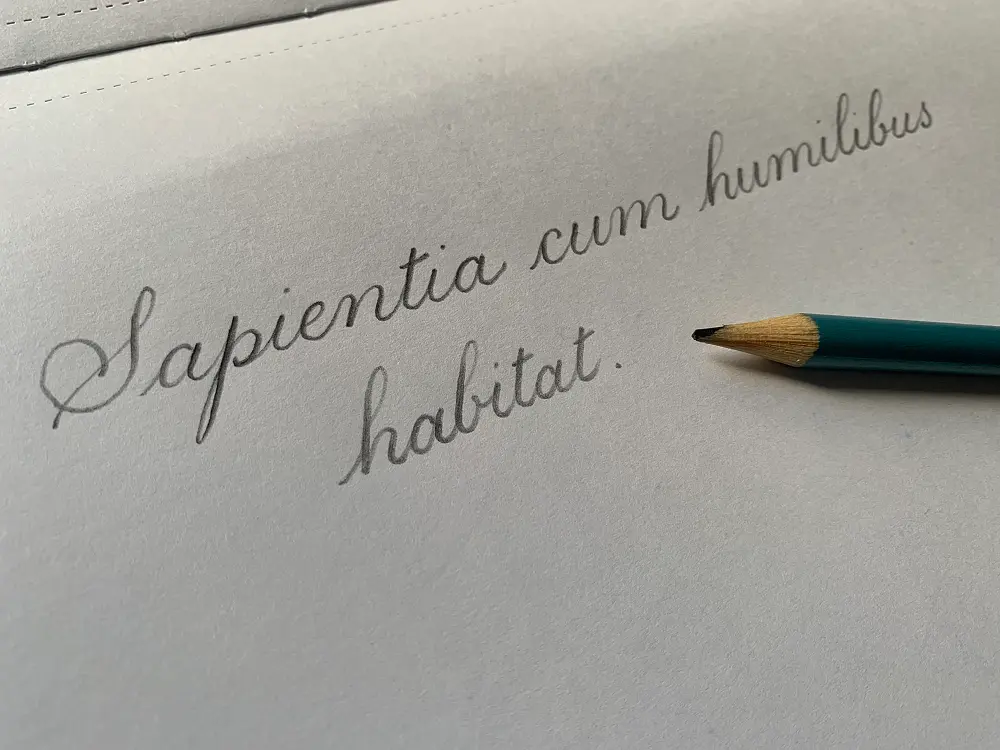 Sapientia cum humilibus
habitat.